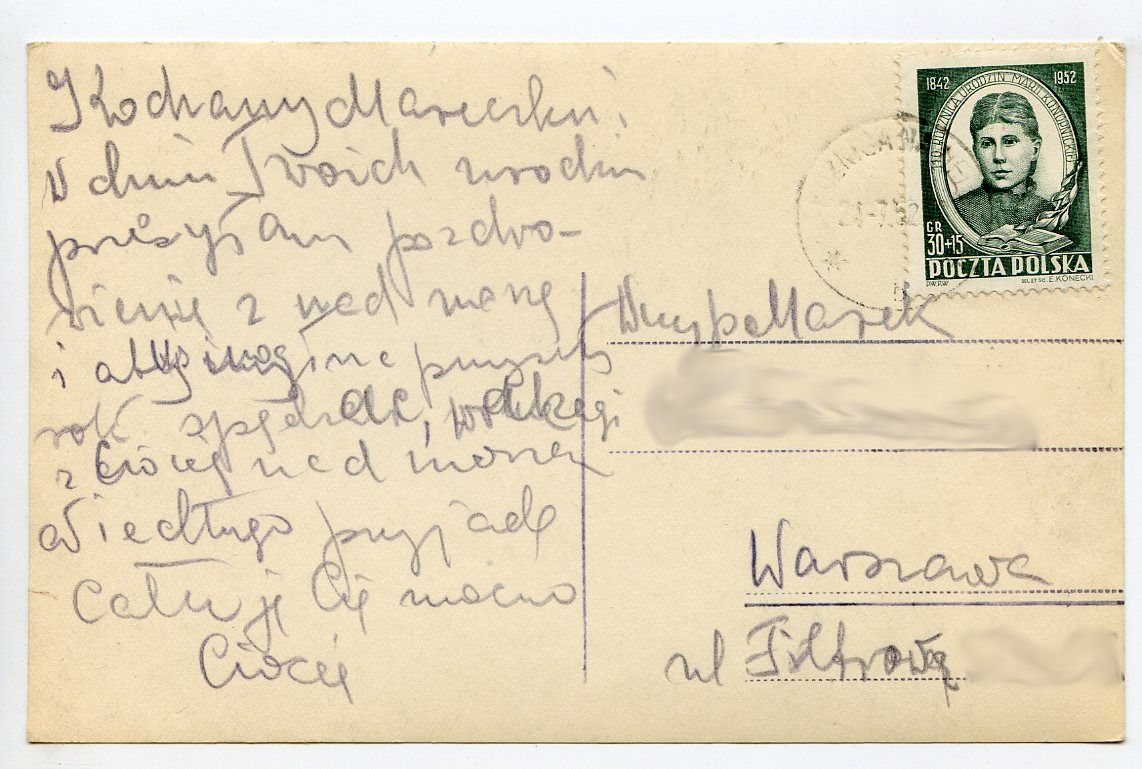 Kochany Mareczku!
W dniu Twoich urodzin
przesyłam pozdro-
wienie z nad morza
i abyś mógł na przyszły
rok spędzać wakacje
z Ciocią nad morzem
Niedługo przyjadę
Całuję Cię mocno
Ciocia
1842 1952
110 ROCZNICA URODZIN MARII KONOPNICKIEJ
GR
30+15
POCZTA POLSKA
P.W.P.W. DEL. ET SC. E. KONECKI
-7.52
Marek
Warszawa
ul Filtrowa